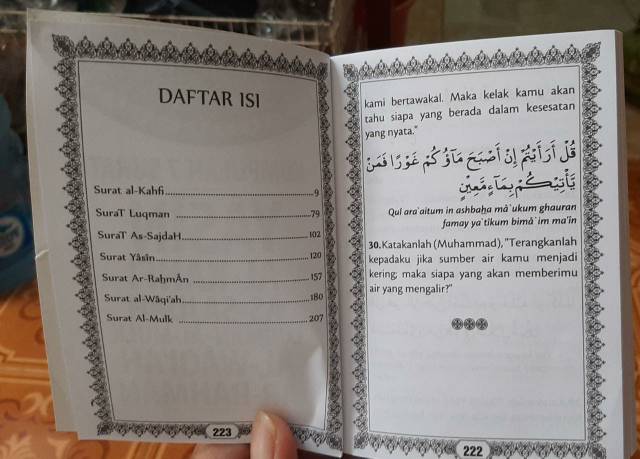 DAFTAR ISI
Surat al-Kahfi 9
SuraT Luqman 79
SuraT As-SajdaH 102
Surat Yâsîn 120
Surat Ar-RaḥmÂn 157
Surat al-Wâqi'ah 180
Surat Al-Mulk 207
223
kami bertawakal. Maka kelak kamu akan
tahu siapa yang berada dalam kesesatan
yang nyata."
قُلْ أَرَأَيْتُمْ إِنْ أَصْبَحَ مَآؤُكُمْ غَوْرًا فَمَن
يَأْتِيكُم بِمَآءٍ مَّعِينٍ
Qul ara'aitum in ashbaḥa mâ'ukum ghauran
famay ya'tikum bimâ'im ma'in
30.Katakanlah (Muhammad), "Terangkanlah
kepadaku jika sumber air kamu menjadi
kering; maka siapa yang akan memberimu
air yang mengalir?"
222